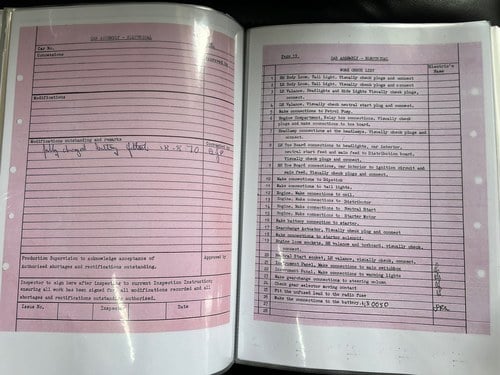 CAR ASSEMBLY - ELECTRICAL
Car No.
Concessions
Modifications
Modifications outstanding and remarks
fully charged battery fitted 18-8-70
Production Supervision to acknowledge acceptance of
Authorised shortages and rectifications outstanding.
Approved by
Inspector to sign here after inspecting to current Inspection Instruction;
ensuring all work has been signed for all modifications recorded and all
shortages and rectifications outstanding authorised.
Issue No.
Inspector
Date
Page 13.
CAR ASSEMBLY - ELECTRICAL
WORK CHECK LIST
Electric's
Name
1 RH Body Loom, Tail Light. Visually check plugs and connect
2 LH Body Loom, Tail Light. Visually check plugs and connect
3 LH Valance, Headlights and Side Lights Visually check plugs,
connect.
LH Valance. Visually check neutral start plug and connect.
Make connections to Petrol Pump.
Engine Compartment, Relay box connections. Visually check
plugs and make connections to ten board.
Headlamp connections at the headlamps. Visually check plugs and
connect.
LH Toe Board connections to headlights, car interior,
neutral start feed and main feed to Distribution board.
Visually check plugs and connect.
RH Toe Board connections, car interior to Ignition circuit and
main feed. Visually check plugs and connect.
Make connections to Dipstick
Make connections to tail lights.
Engine. Make connections to coil.
Engine. Make connections to Distributor
Engine. Make connections to Neutral Start
Engine. Make connections to Starter Motor
Make battery connection to starter.
Gearchange Actuator, Visually check plug and connect
Make connections to starter solenoid.
Engine loom sockets, RH valance and toeboard, visually check,
connect.
Neutral Start socket, LH valance, visually check, connect.
Instrument Panel, Make connections to main switchbox
Instrument Panel, Make connections to warning lights
Make gearchange connections to steering column
Check gear selector moving contact
Fit the unfused lead to the radio fuse
Make the connections to the battery. 430050